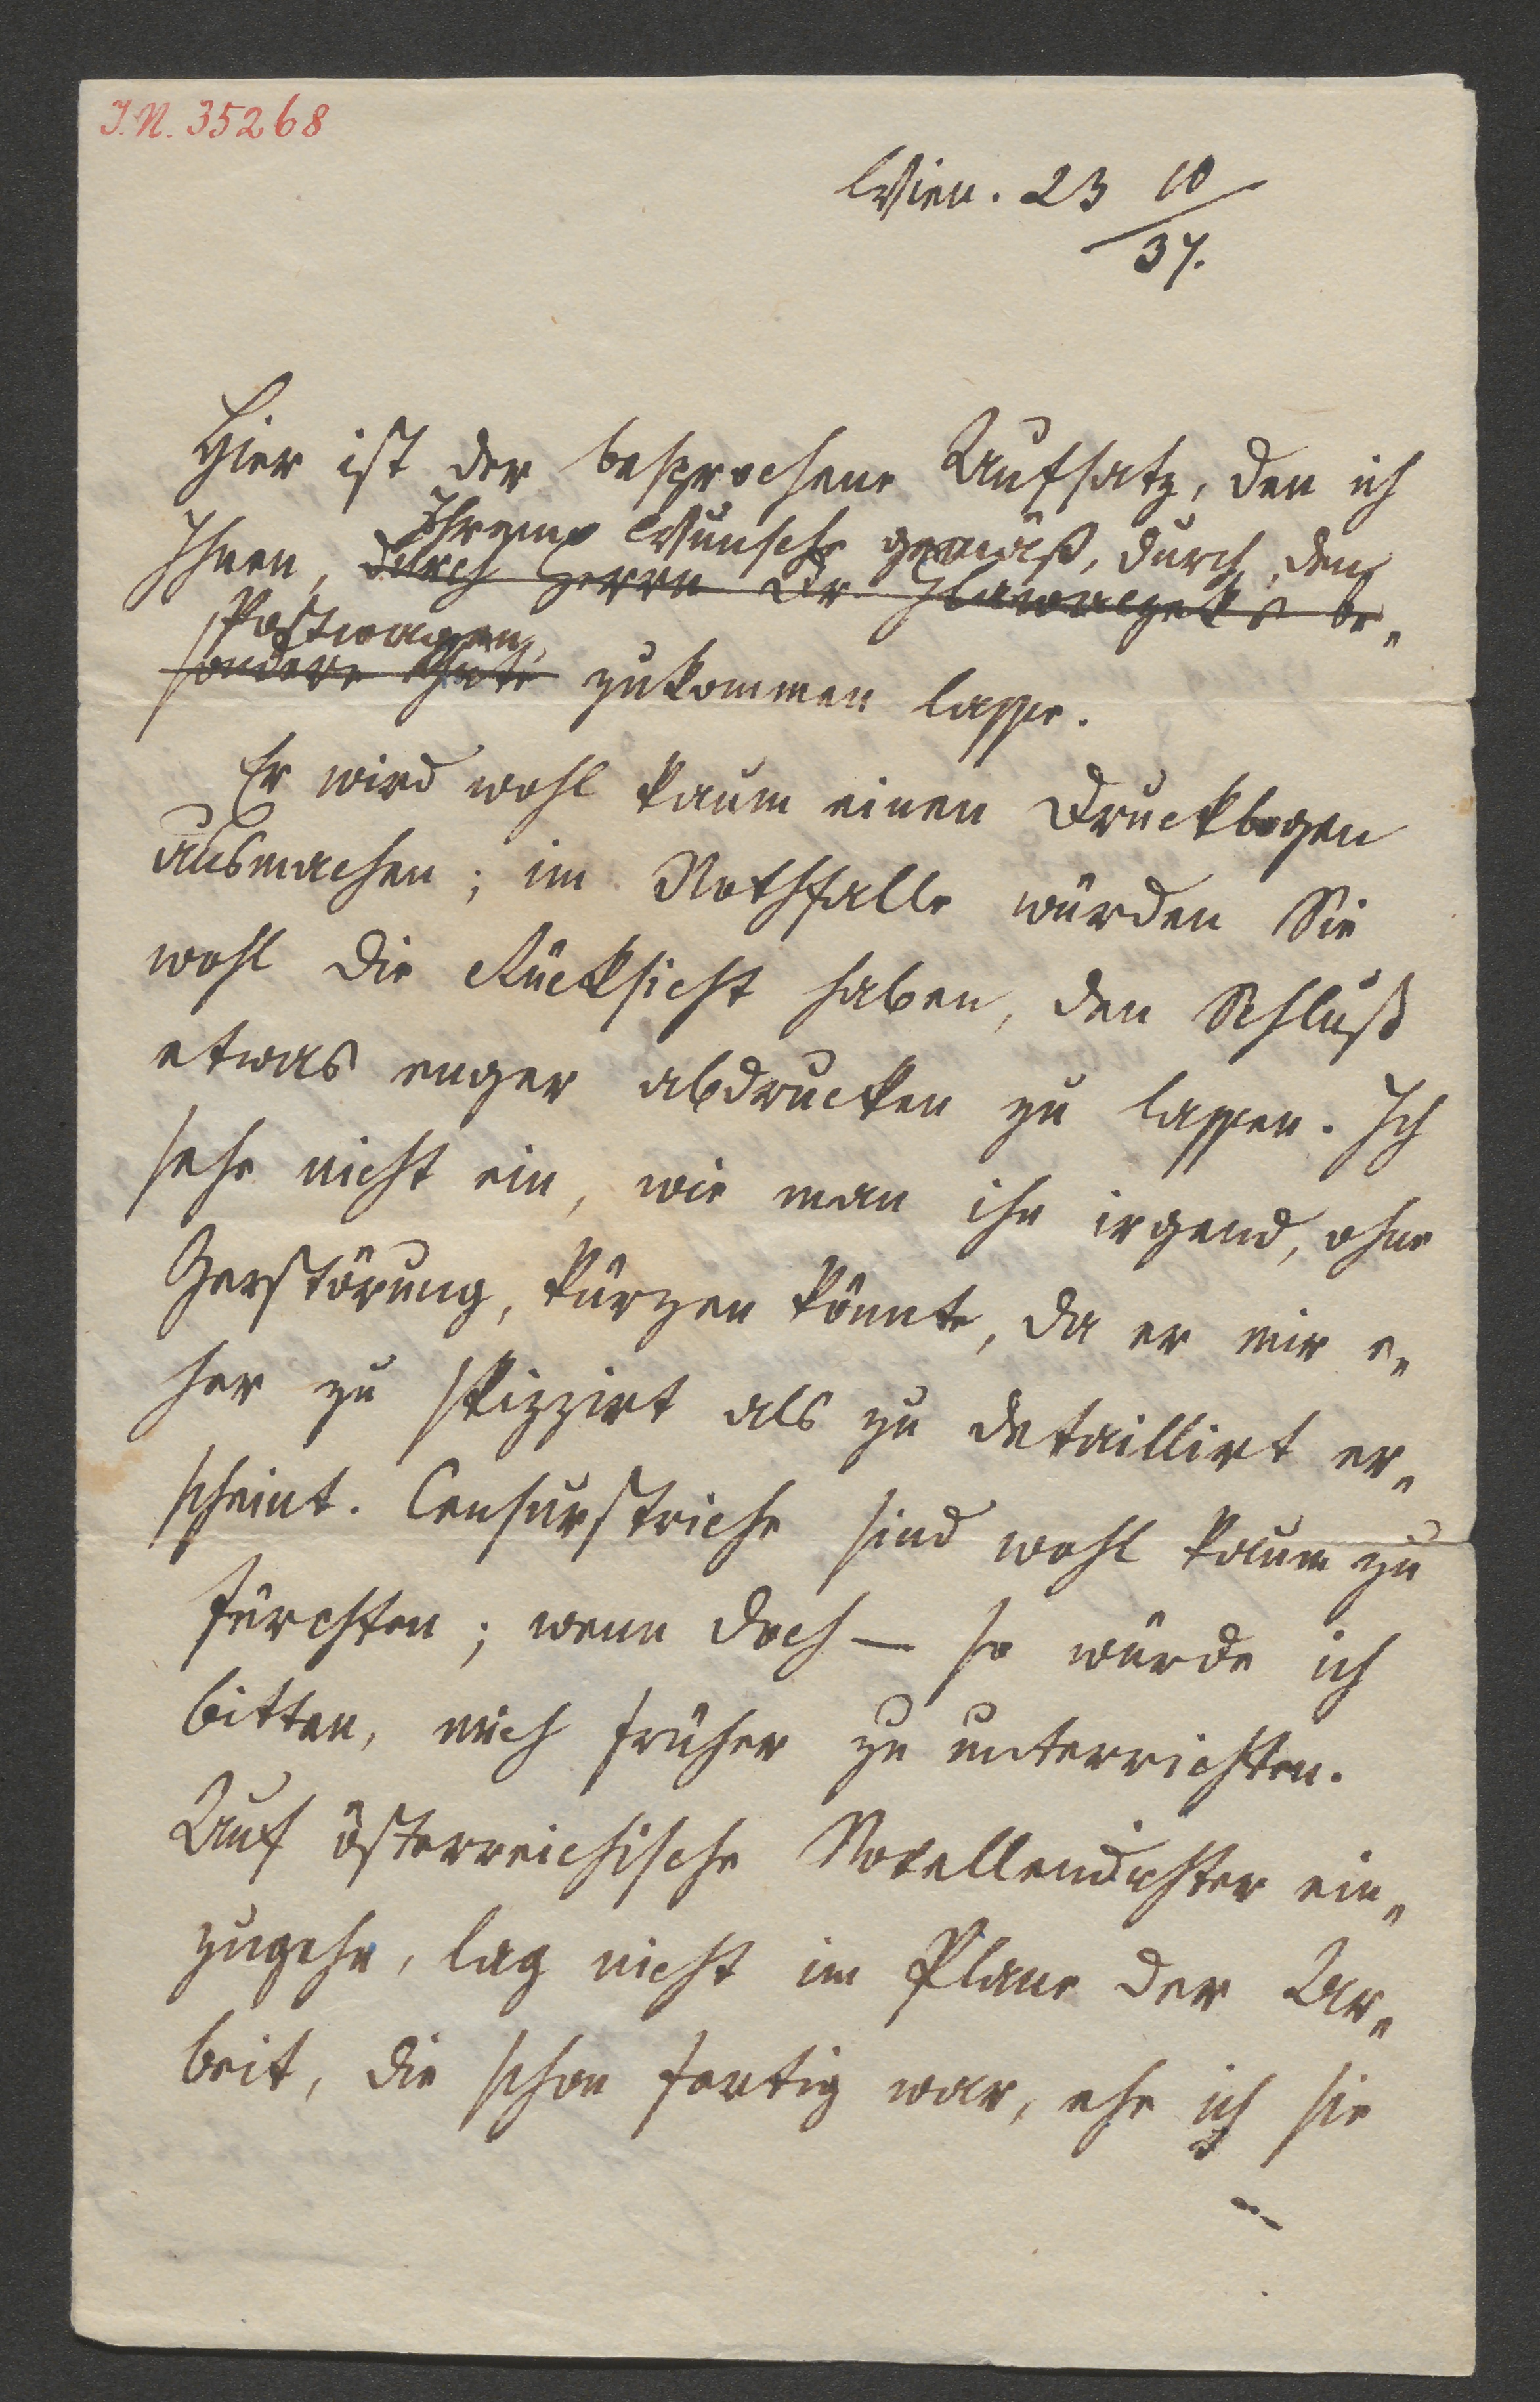 I. N. 35268
Wien. 23 10/37.
Hier ist der besprochene Aufsatz, den ich
Ihrem Wunsche gemäß, durch den
Ihnen, durch Herrn Dr. Hlawaczek's be-
Postwagen,
sondere Güte zukommen lasse.
Er wird wohl kaum einen Druckbogen
ausmachen; im Nothfalle würden Sie
wohl die Rücksicht haben, den Schluß
etwas enger abdrucken zu lassen. Ich
sehe nicht ein, wie man ihn irgend, ohne
Zerstörung, kürzen könnte, da er mir e-
her zu skizzirt als zu detaillirt er-
scheint. Censurstriche sind wohl kaum zu
fürchten; wenn doch — so würde ich
bitten, mich früher zu unterrichten.
Auf österreichische Novellendichter ein-
zugehn, lag nicht im Plane der Ar-
beit, die schon fertig war, ehe ich sie